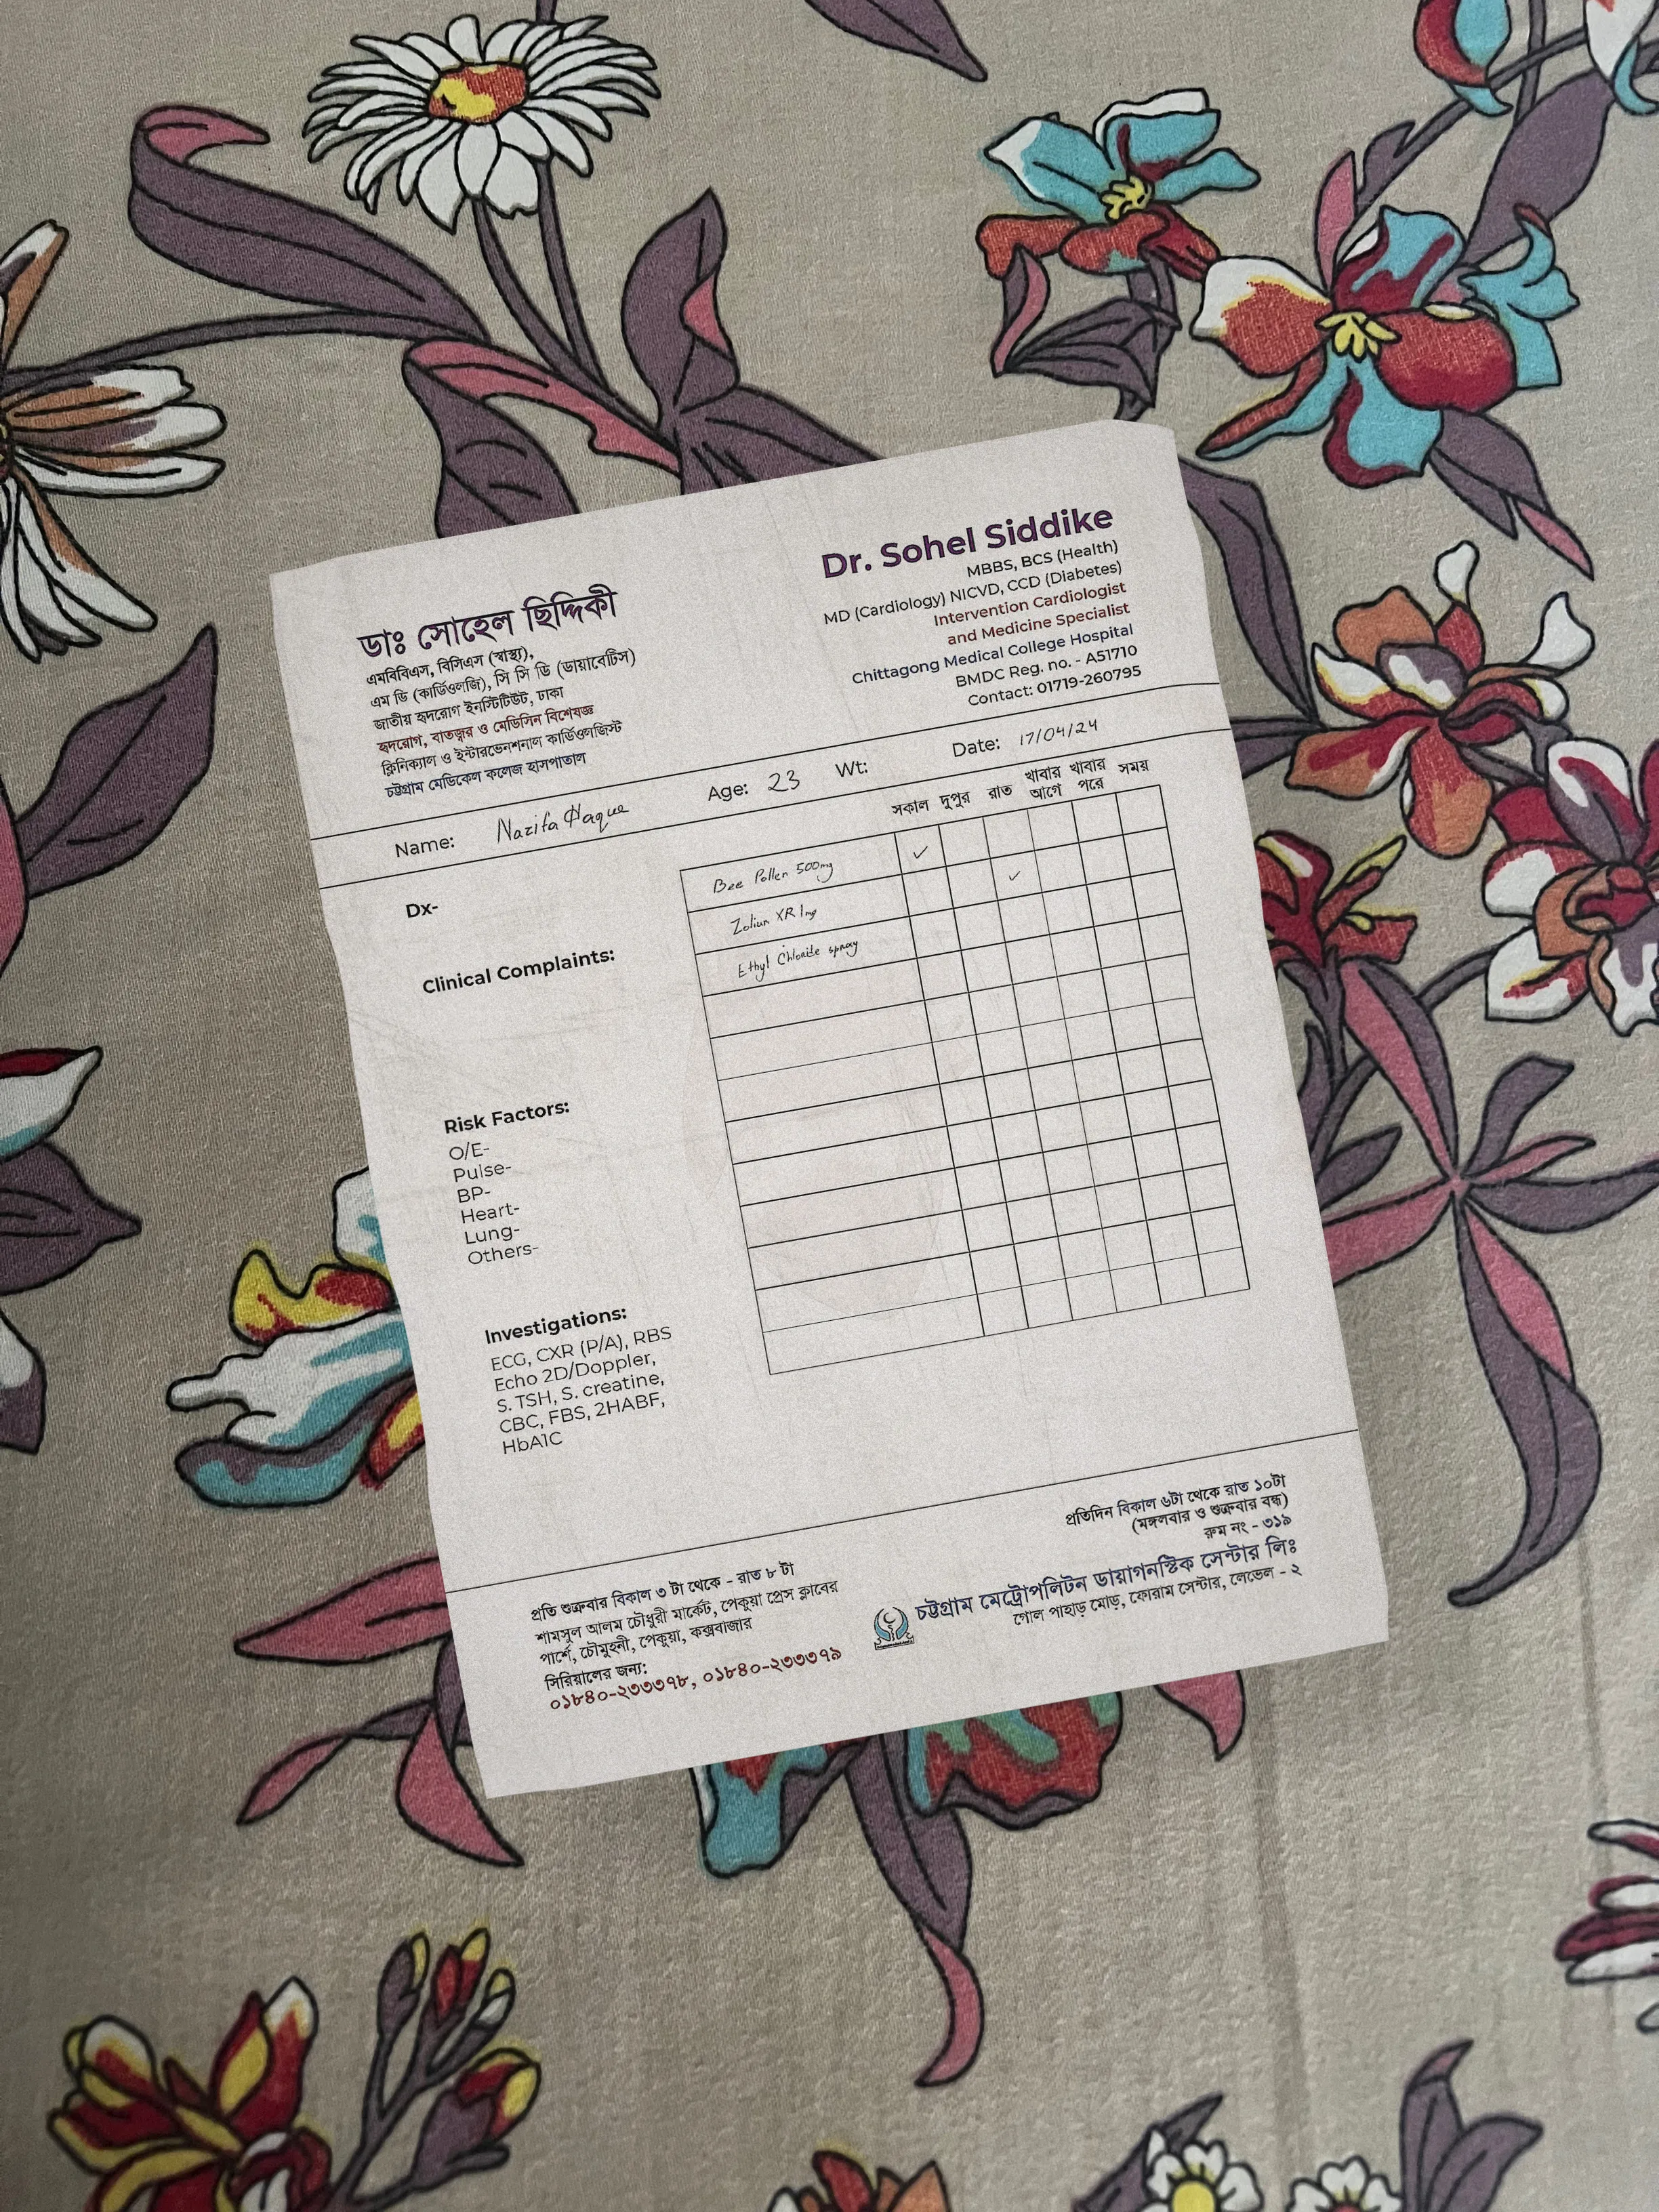 ডাঃ সোহেল ছিদ্দিকী
এমবিবিএস, বিসিএস (স্বাস্থ্য),
এম ডি (কার্ডিওলজি), সি সি ডি (ডায়াবেটিস)
জাতীয় হৃদরোগ ইনস্টিটিউট, ঢাকা
হৃদরোগ, বাতজ্বর ও মেডিসিন বিশেষজ্ঞ
ক্লিনিক্যাল ও ইন্টারভেনশনাল কার্ডিওলজিস্ট
চট্টগ্রাম মেডিকেল কলেজ হাসপাতাল
Dr. Sohel Siddike
MBBS, BCS (Health)
MD (Cardiology) NICVD, CCD (Diabetes)
Intervention Cardiologist
and Medicine Specialist
Chittagong Medical College Hospital
BMDC Reg. no. - A51710
Contact: 01719-260795
Name: Nazifa Haque Age: 23 Wt: Date: 17/04/24
সকাল দুপুর রাত খাবার আগে খাবার পরে সময়
Bee Pollen 500mg ✓
Zolium XR 1mg ✓
Ethyl Chloride spray
Dx-
Clinical Complaints:
Risk Factors:
O/E-
Pulse-
BP-
Heart-
Lung-
Others-
Investigations:
ECG, CXR (P/A), RBS
Echo 2D/Doppler,
S. TSH, S. creatine,
CBC, FBS, 2HABF,
HbA1C
প্রতি শুক্রবার বিকাল ৩ টা থেকে - রাত ৮ টা
শামসুল আলম চৌধুরী মার্কেট, পেকুয়া প্রেস ক্লাবের
পার্শে, চৌমুহনী, পেকুয়া, কক্সবাজার
সিরিয়ালের জন্য:
০১৮৪০-২৩৩৩৭৮, ০১৮৪০-২৩৩৩৭৯
প্রতিদিন বিকাল ৬টা থেকে রাত ১০টা
(মঙ্গলবার ও শুক্রবার বন্ধ)
রুম নং - ৩১৯
চট্টগ্রাম মেট্রোপলিটন ডায়াগনস্টিক সেন্টার লিঃ
গোল পাহাড় মোড়, ফোরাম সেন্টার, লেভেল - ২